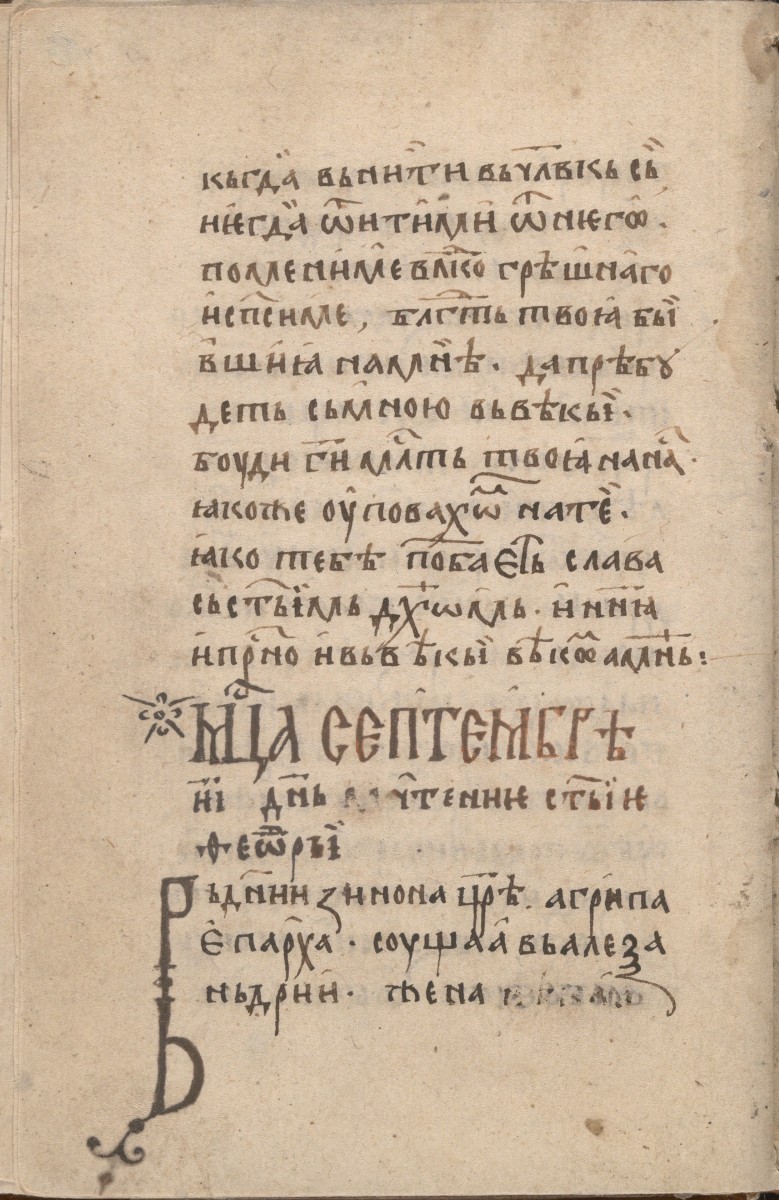 къгда̀ вьни́ти вьчл҃вѣкь съ̀
ниѥгда̀ ѿити́ми ѿ нѥго̀ .
помени́ме вл҃ко грѣшна́го
и҆сп҃симе , бл҃гⷭ҇ть твоꙗ бы̀
в̾ши́ꙗ намнѣ̀ . дапрѣбꙋ
деть сьмною вьвѣкы̀ .
боуди гн҃и мл҃ть твоꙗ нана́с .
ꙗкоже оу҆повахѡⷨ натѐ .
ꙗко тебѣ̀ по́баѥть слава
сьст҃ы́имь дх҃ѡмь . и҆ нн҃ꙗ
и҆прⷭ҇но и҆вьвѣкы̀ вѣкѡ́ аминь :
Мц҃а септемврѣ
иі дн҃ь чтение ст҃ы́ѥ
ѳеѡ҆ры̀
Въдн҃и зинона цр҃ѣ . агрипа
е҆парха . соущаа҆ вьалеѯа
ньдри́и . жена